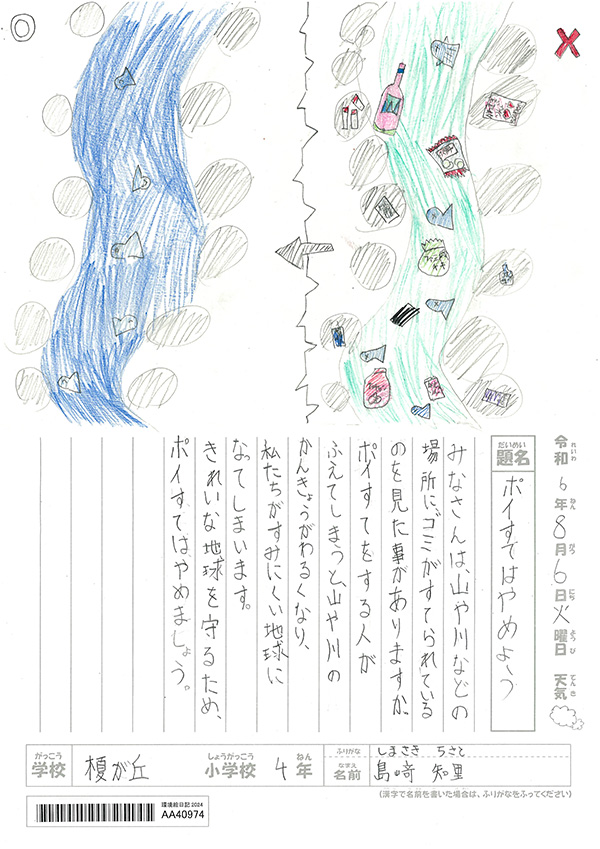 令和6年8月6日火曜日 天気
れいわ ねん がつ にち ようび てんき
だいめい
題名
ポイすてはやめよう
みなさんは、山や川などの
場所に、ゴミがすてられている
のを見た事がありますか。
ポイすてをする人が
ふえてしまうと、山や川の
かんきょうがわるくなり、
私たちがすみにくい地球に
なってしまいます。
きれいな地球を守るため、
ポイすてはやめましょう。
がっこう しょうがっこう ねん
学校 榎が丘 小学校 4年
ふりがな しまさき ちさと
なまえ
名前 島崎 知里
(漢字で名前を書いた場合は、ふりがなをふってください)
環境絵日記2024
AA40974